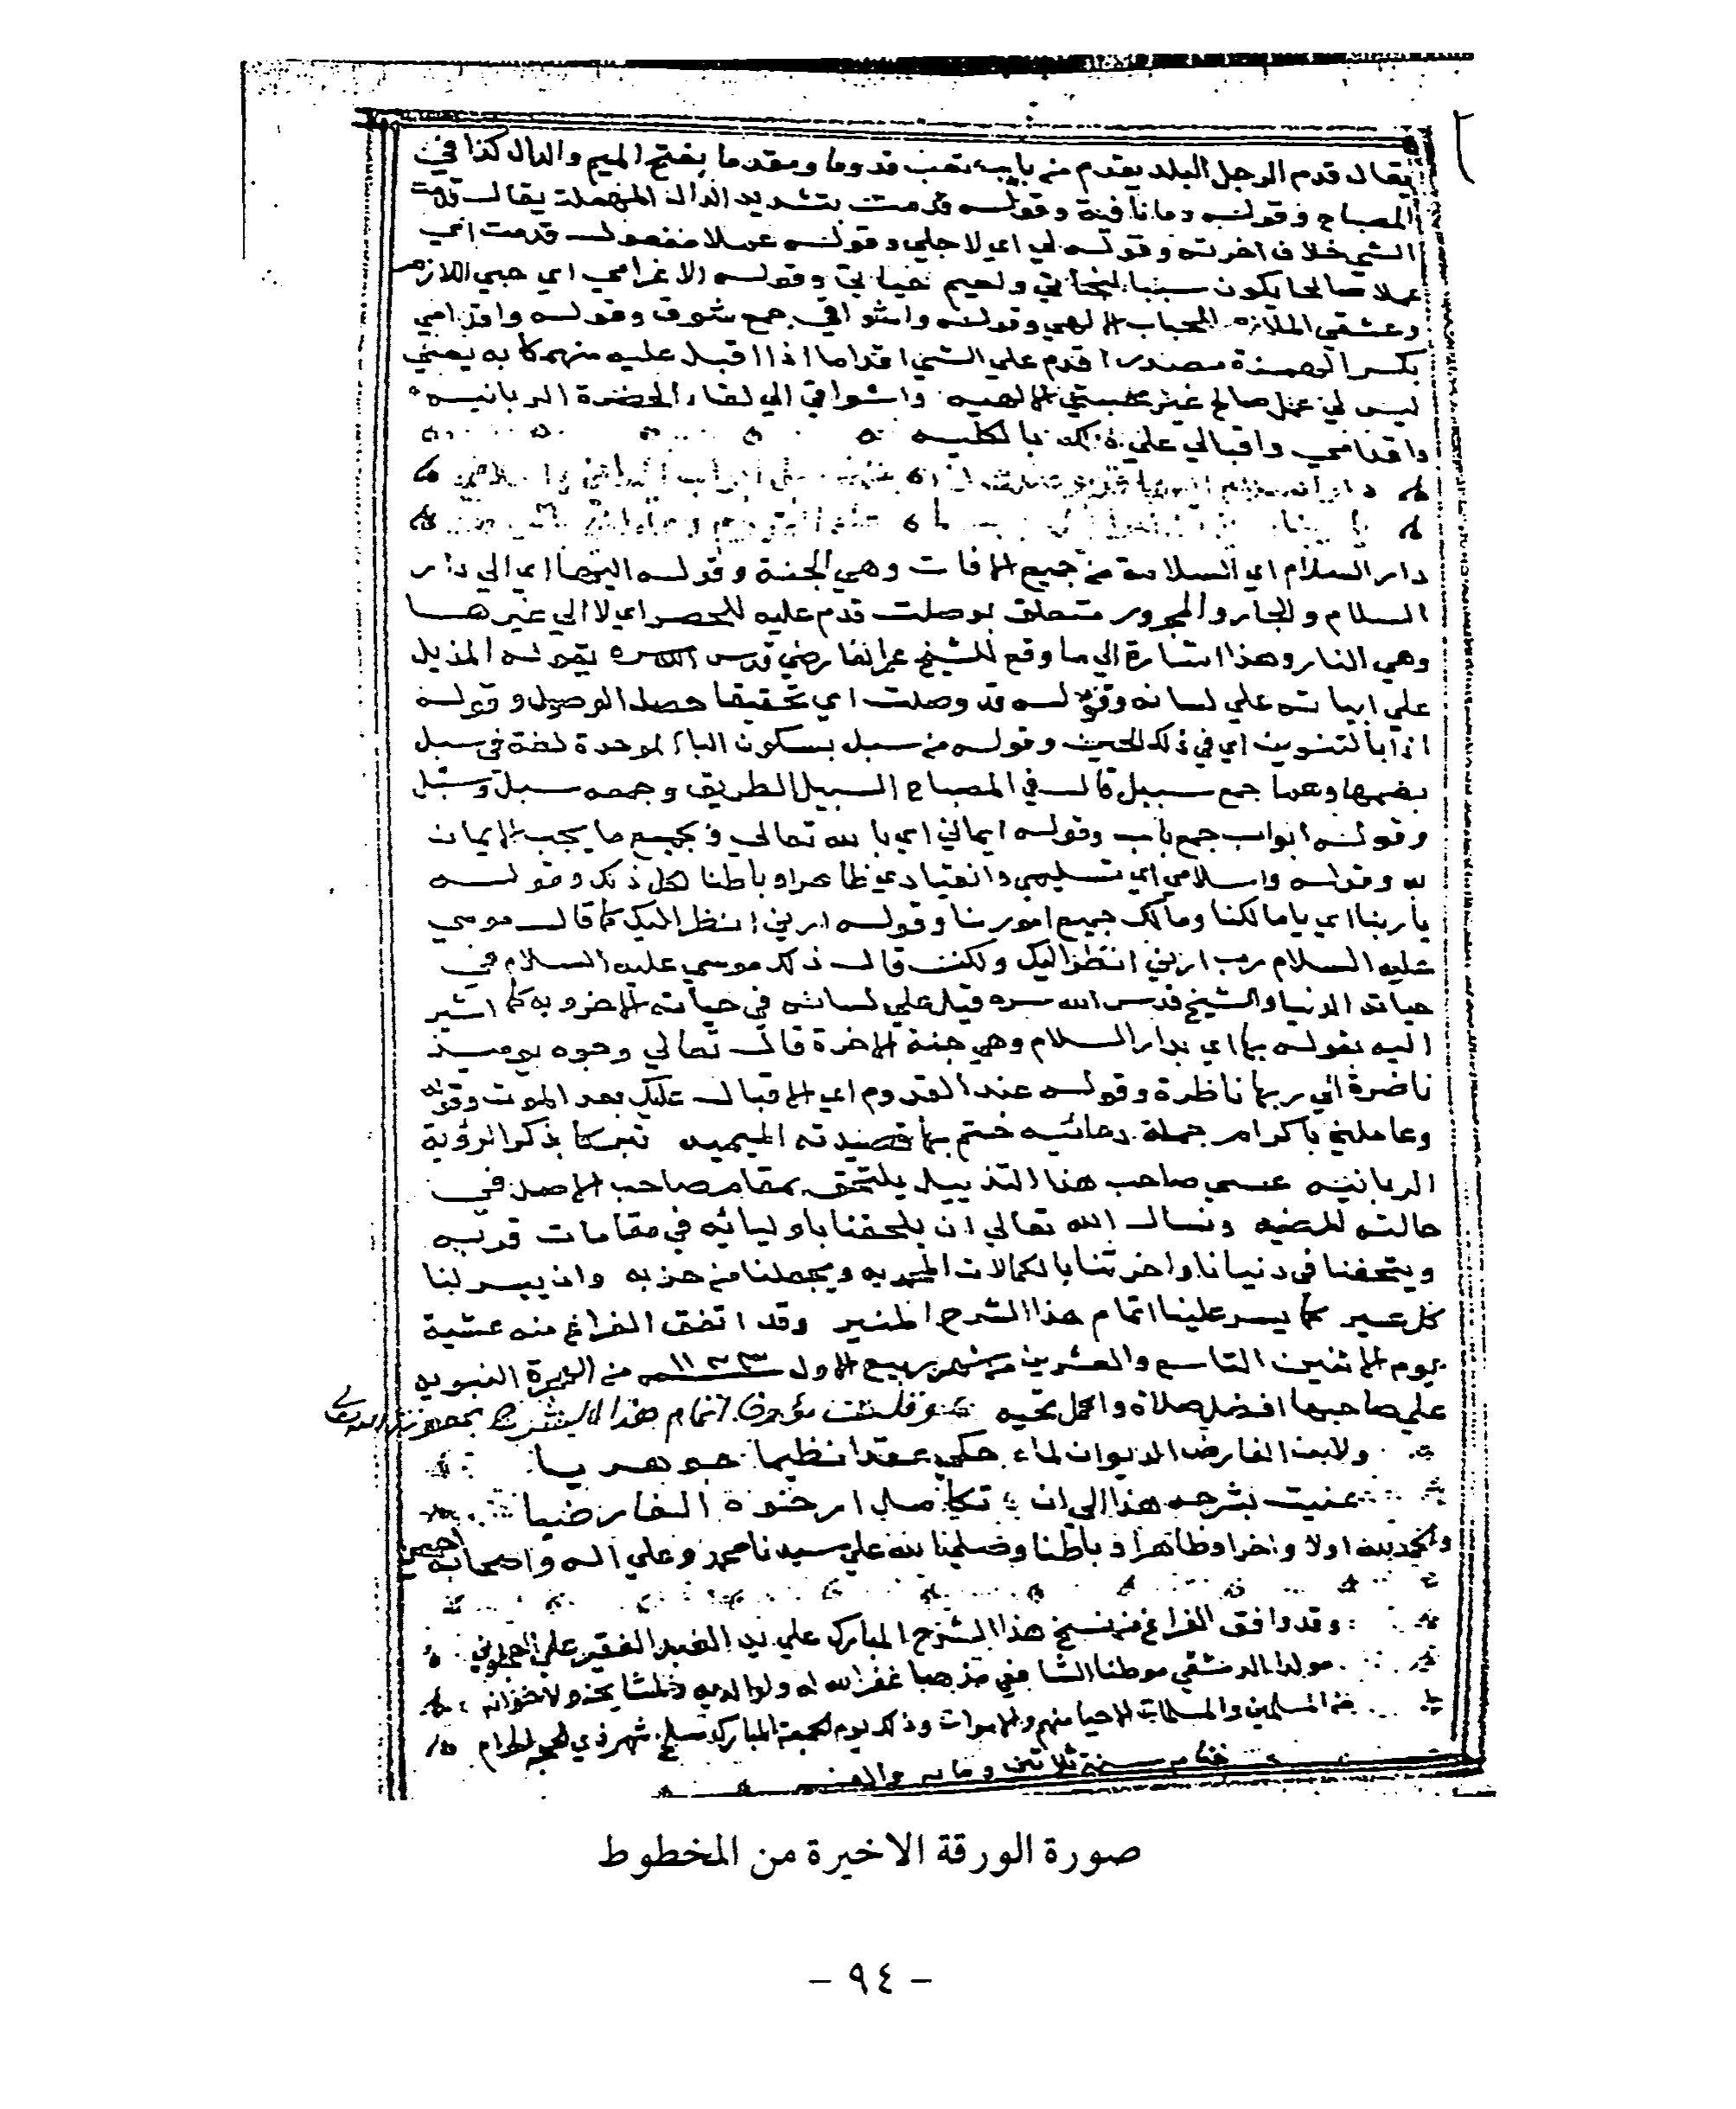 يقال قدم الرجل البلد يقدم من باب تعب قدوما ومقدما بفتح الميم والدال كذا في
المصباح وقوله وما نافية وقوله قدمت بتشديد الدال المهملة يقال قدمت
الشي خلاف اخرته وقوله لي اي لاجلي وقوله عملا مفعول قدمت اي
عملا صالحا يكون سببا لنجاتي ونعيم حياتي وقوله الا غرامي اي حبي اللازم
وعشقي الملازم للجناب الالهي وقوله واشواقي جمع شوق وقوله واقدامي
بكسر الهمزة مصدر اقدم علي الشي اقداما اذا اقبل عليه منهمكا به يعني
ليس لي عمل صالح غير محبتي الالهيه واشواقي الي لقاء الحضرة الربانيه
واقدامي واقبالي علي ذلك بالكليه
دار السلام اليها قد وصلت اذا من سبل ابواب ايماني واسلامي
يا ربنا ارني انظر اليك بها عند القدوم وعاملني باكرام
دار السلام اي السلامة من جميع الافات وهي الجنة وقوله اليها اي الي دار
السلام والجار والمجرور متعلق بوصلت قدم عليه للحصر اي لا الي غيرها
وهي النار وهذا اشارة الي ما وقع للشيخ عمر الفارضي قدس الله سره بقوله المذيل
علي ابياته علي لسانه وقوله قد وصلت اي تحقيقا حصل الوصول وقوله
اذا بالتنوين اي في ذلك الحين وقوله من سبل بسكون الباء الموحدة لغة في سبل
بضمها وهما جمع سبيل قال في المصباح السبيل الطريق وجمعه سبل وسبل
وقوله ابواب جمع باب وقوله ايماني اي بالله تعالي وبجميع ما يجب الايمان
به وقوله واسلامي اي تسليمي وانقيادي ظاهرا وباطنا لكل ذلك وقوله
يا ربنا اي يا مالكنا ومالك جميع امورنا وقوله ارني انظر اليك كما قال موسي
عليه السلام رب ارني انظر اليك ولكن قال ذلك موسي عليه السلام في
حياته الدنيا والشيخ قدس الله سره قيل علي لسانه في حياته الاخرويه كما اشير
اليه بقوله بها اي بدار السلام وهي جنة الاخرة قال تعالي وجوه يوميذ
ناضرة الي ربها ناظرة وقوله عند القدوم اي الاقبال عليك بعد الموت وقوله
وعاملني باكرام جملة دعائيه ختم بها قصيدته الميميه تبركا بذكر الرؤية
الربانيه عسي صاحب هذا التذييل يلتحق بمقام صاحب الاصل في
حالته المرضيه ونسال الله تعالي ان يلحقنا باوليائه في مقامات قربه
ويتحفنا في دنيانا واخرتنا بالكمالات المحمديه ويجعلنا من حزبه وان ييسر لنا
كل عسير كما يسر علينا اتمام هذا الشرح المنير وقد اتفق الفراغ منه عشية
يوم الاثنين التاسع والعشرين من شهر ربيع الاول ١١٢٣ من الهجرة النبويه
علي صاحبها افضل صلاة واكمل تحيه وقلت مؤرخا اتمام هذا الشرح بمعونة الله تعالي
ولابن الفارض الديوان لما حكي عقدا نظيما جوهريا
عنيت بشرحه هذا الي ان تكامل ارخوه الفارضيا
والحمد لله اولا واخرا وظاهرا وباطنا وصلي الله علي سيدنا محمد وعلي اله واصحابه اجمعين
وقد وافق الفراغ من نسخ هذا الشرح المبارك علي يد العبد الفقير علي
مولدا الدمشقي موطنا الشافعي مذهبا غفر الله له ولوالديه ولمشايخه ولاخوانه
من المسلمين والمسلمات الاحيا منهم والاموات وذلك يوم الجمعة المبارك سلخ شهر ذي الحجه الحرام
ختام سنة ثلاثين ومايه والف
صورة الورقة الاخيرة من المخطوط
- ٩٤ -